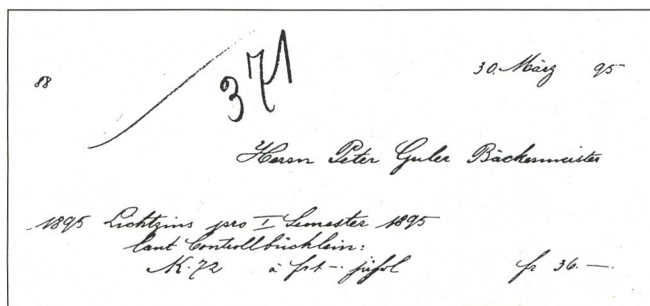 88
371
30. März 95
Herrn Peter Guler Bäckermeister
1895 Lichtzins pro I Semester 1895
laut Controllbüchlein:
K. 72 à frs 1.- jährl fr 36.—